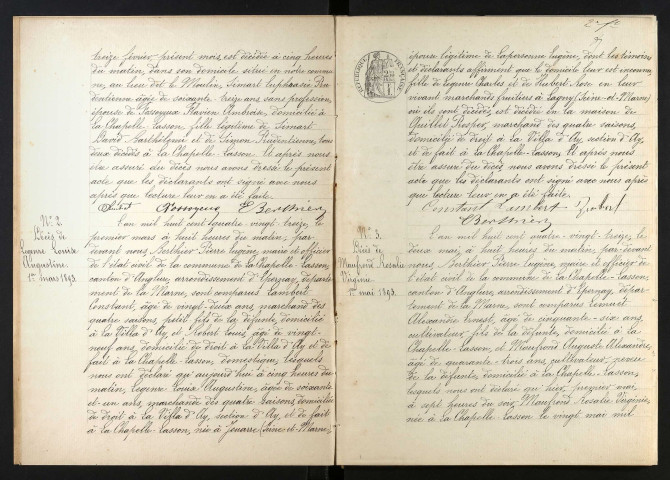 treize février, présent mois, est décédée à cinq heures
du matin, dans son domicile situé en notre commu
ne, au lieu dit le Moulin, Simart Euphrasie Pru
dentienne âgée de soixante treize ans sans profession,
épouse de Flavien Ambroise, domiciliée à
la Chapelle-Lasson, fille légitime de Simart
David Barthélemi et de Simon Prudentienne, tous
deux décédés à la Chapelle-Lasson. Et après nous
être assuré du décès nous avons dressé le présent
acte que les déclarants ont signé avec nous
après que lecture leur en a été faite.
E Berthier
N° 2
Décès de
Legenre Louise
Augustine
1er mars 1893.
L'an mil huit cent quatre-vingt-treize, le
premier mars à huit heures du matin, par
devant nous Berthier Pierre Eugène, maire et officier
de l'état civil de la commune de la Chapelle-Lasson,
canton d'Anglure, arrondissement d'Epernay, départe
ment de la Marne, sont comparus Lambert
Constant, âgé de vingt-deux ans marchand des
quatre saisons, petit-fils de la défunte, domicilié
à la Villa d'Ay et Robert Louis, âgé de vingt-
neuf ans, domicilié de droit à la Villa d'Ay et de
fait à la Chapelle-Lasson, domestique, lesquels
nous ont déclaré qu'aujourd'hui à cinq heures du
matin, Legenre Louise Augustine, âgée de soixante
et un ans, marchande des quatre saisons domiciliée
de droit à la Villa d'Ay, section d'Ay, et de fait
à la Chapelle-Lasson, née à Jouarre (Seine-et-Marne,
REPUBLIQUE FRANCAISE
épouse légitime de Lapersonne Eugène, dont les témoins
et déclarants affirment que le domicile leur est inconnu,
fille de Legenre Charles et de Hubert Rose en leur
vivant marchands fruitiers à Lagny (Seine-et-Marne)
où ils sont décédés est décédée en la maison de
Prosper, marchand des quatre saisons,
domicilié de droit à la Villa d'Ay, section d'Ay
et de fait à la Chapelle-Lasson. Et après nous
être assuré du décès nous avons dressé le présent
acte que les déclarants ont signé avec nous après
que lecture leur en a été faite.
Constant Lambert Robert
Berthier
N° 3.
Décès de
Maufroid Rosalie
Virginie.
1er mai 1893.
L'an mil huit cent quatre-vingt-treize, le
deux mai, à huit heures du matin, par-devant
nous, Berthier Pierre Eugène, maire et officier de
l'état civil de la commune de la Chapelle-Lasson,
canton d'Anglure, arrondissement d'Epernay, dépar-
tement de la Marne, sont comparus
Alexandre Ernest, âgé de cinquante-six ans,
cultivateur, fils de la défunte, domicilié à la
Chapelle-Lasson, et Maufroid Auguste Alexandre,
âgé de quarante-trois ans, cultivateur, neveu
de la défunte, domicilié à la Chapelle-Lasson,
lesquels nous ont déclaré qu'hier, premier mai,
à sept heures du soir, Maufroid Rosalie Virginie,
née à la Chapelle-Lasson le vingt mai mil